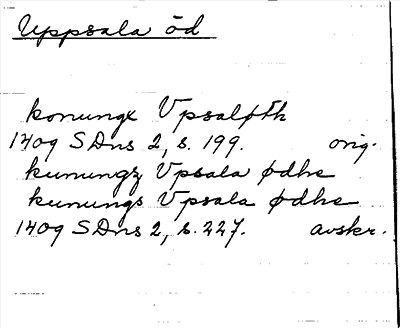 Uppsala öd
konungx Vpsaløth
1409 SDns 2, s. 199. orig.
kunungz Vpsala ødhe
kunungs Vpsala ødhe
1409 SDns 2, s. 227. avskr.